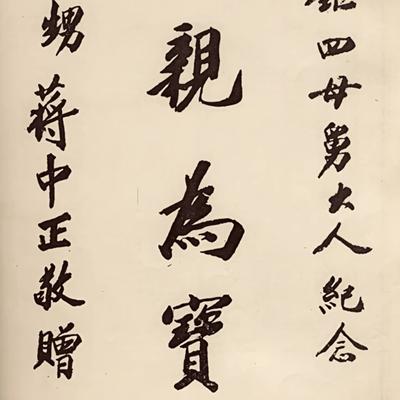 鉅四母舅大人紀念
親為寶
甥蔣中正敬贈